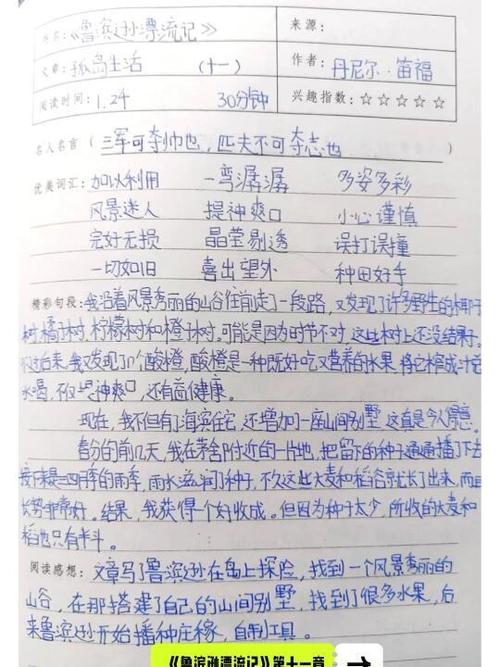 书名:《鲁滨逊漂流记》 来源:
文章:孤岛生活 (十一) 作者:丹尼尔·笛福
阅读时间:1.24 30分钟 兴趣指数:☆☆☆☆☆
名人名言(三军可夺帅也,匹夫不可夺志也
优美词汇:加以利用 一弯潺潺 多姿多彩
风景迷人 提神爽口 小心谨慎
完好无损 晶莹剔透 误打误撞
一切如旧 喜出望外 种田好手
精彩句段:我沿着风景秀丽的山谷往前走了一段路,又发现了许多野生的椰子
树,橘子树,柠檬树和橙子树。可能是因为时节不对,这些树上还没结果子。
不过后来,我发现了几个酸橙,酸橙是一种既好吃又营养的水果,将它榨成汁兑
水喝,不仅提神爽口,还有益健康。
现在,我不但有了海滨住宅,还增加一座山间别墅,这真是令人惬意。
春分的前几天,我在茅舍附近的一片地,把留下的种子通通播了下去
接下来是三四月的雨季,雨水滋润了种子,不久这些大麦和稻谷就长了出来,而且
长势非常好。结果,我获得个好收成。但因为种子太少,所收的大麦和
稻也只有半斗。
阅读感想:文章写了鲁滨逊在岛上探险,找到一个风景秀丽的
山谷,在那搭建了自己的山间别墅,找到了很多水果,后
来鲁滨逊开始播种庄稼,自制工具。
《鲁滨逊漂流记》第十一章